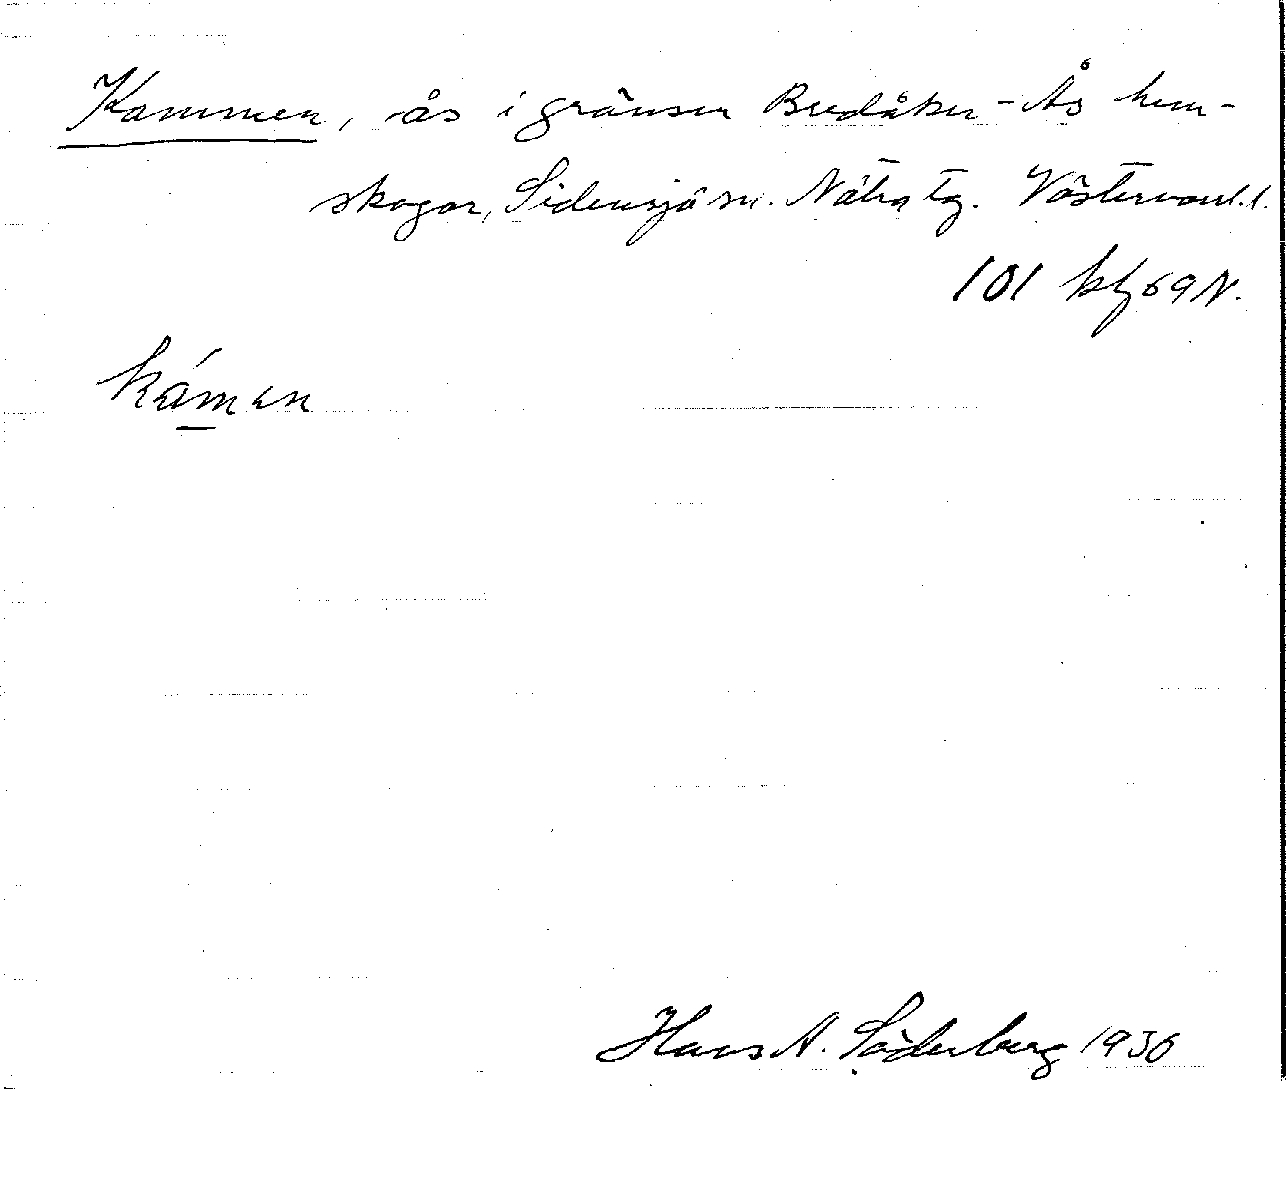 Kammen, ås i gränsen Bredåker - Ås hem-
skogar, Sidensjö sn. Nätra tg. Västernorrl. l.
101 kbf 69 N.
kámen
Hans A. Söderberg 1936